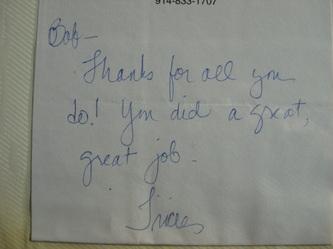 914-833-1707
Bob—
Thanks for all you
do! You did a great,
great job.